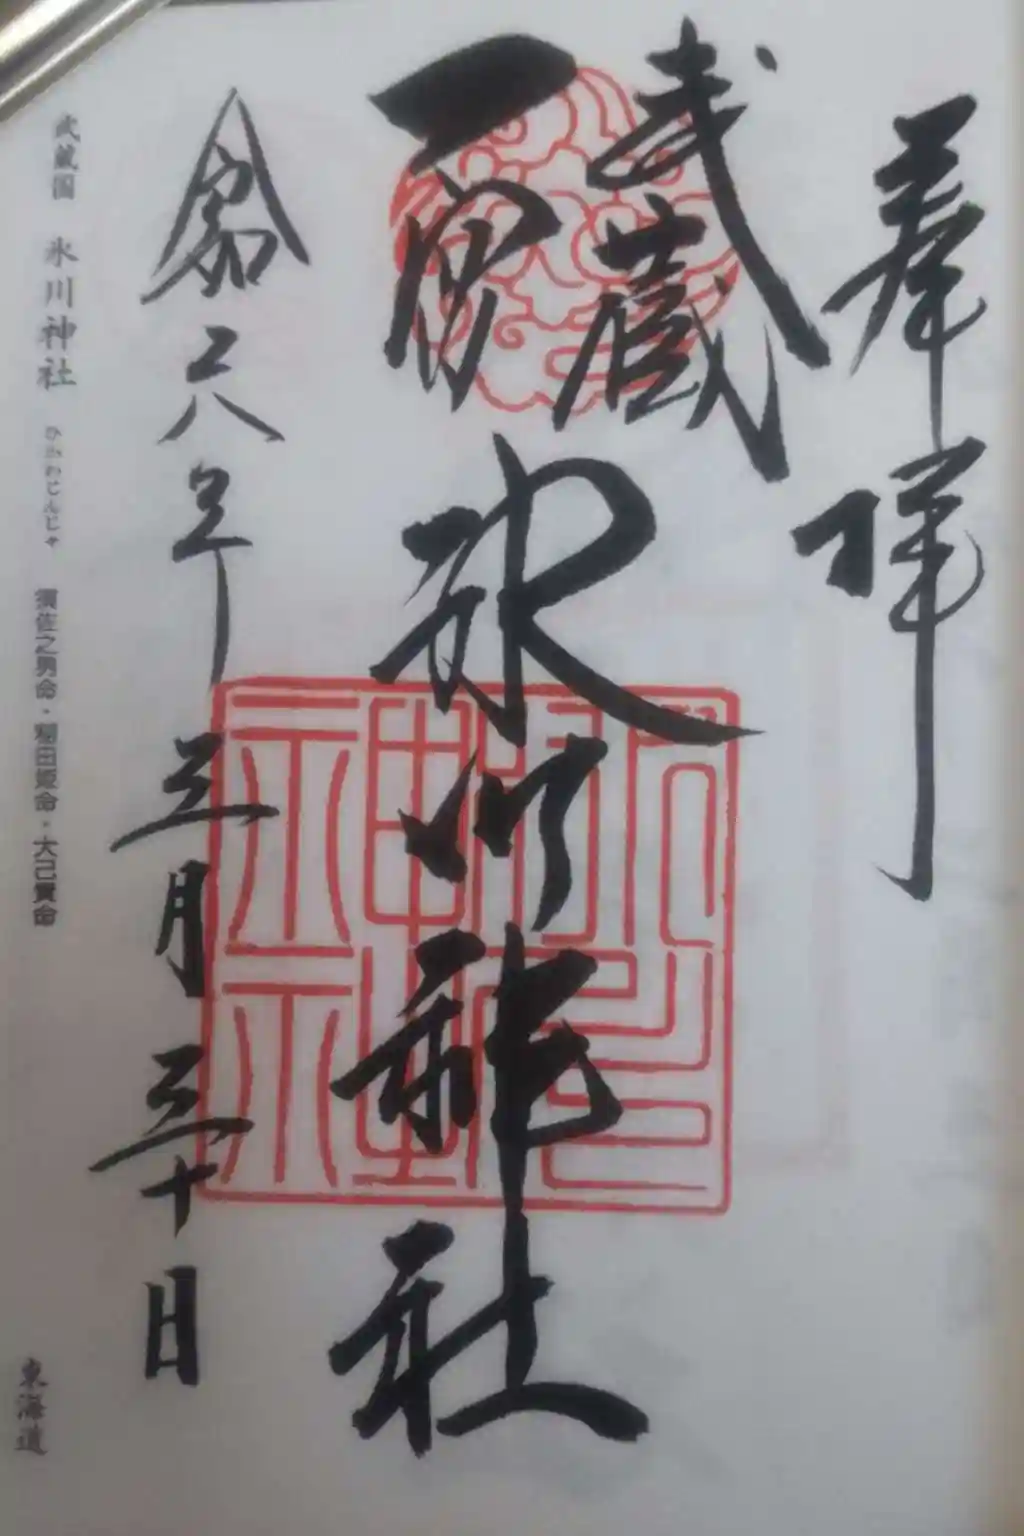 奉拝
武蔵
一宮
氷川神社
八年 三月三十日
武蔵国 氷川神社 ひかわじんじゃ 須佐之男命・稲田姫命・大己貴命 東海道